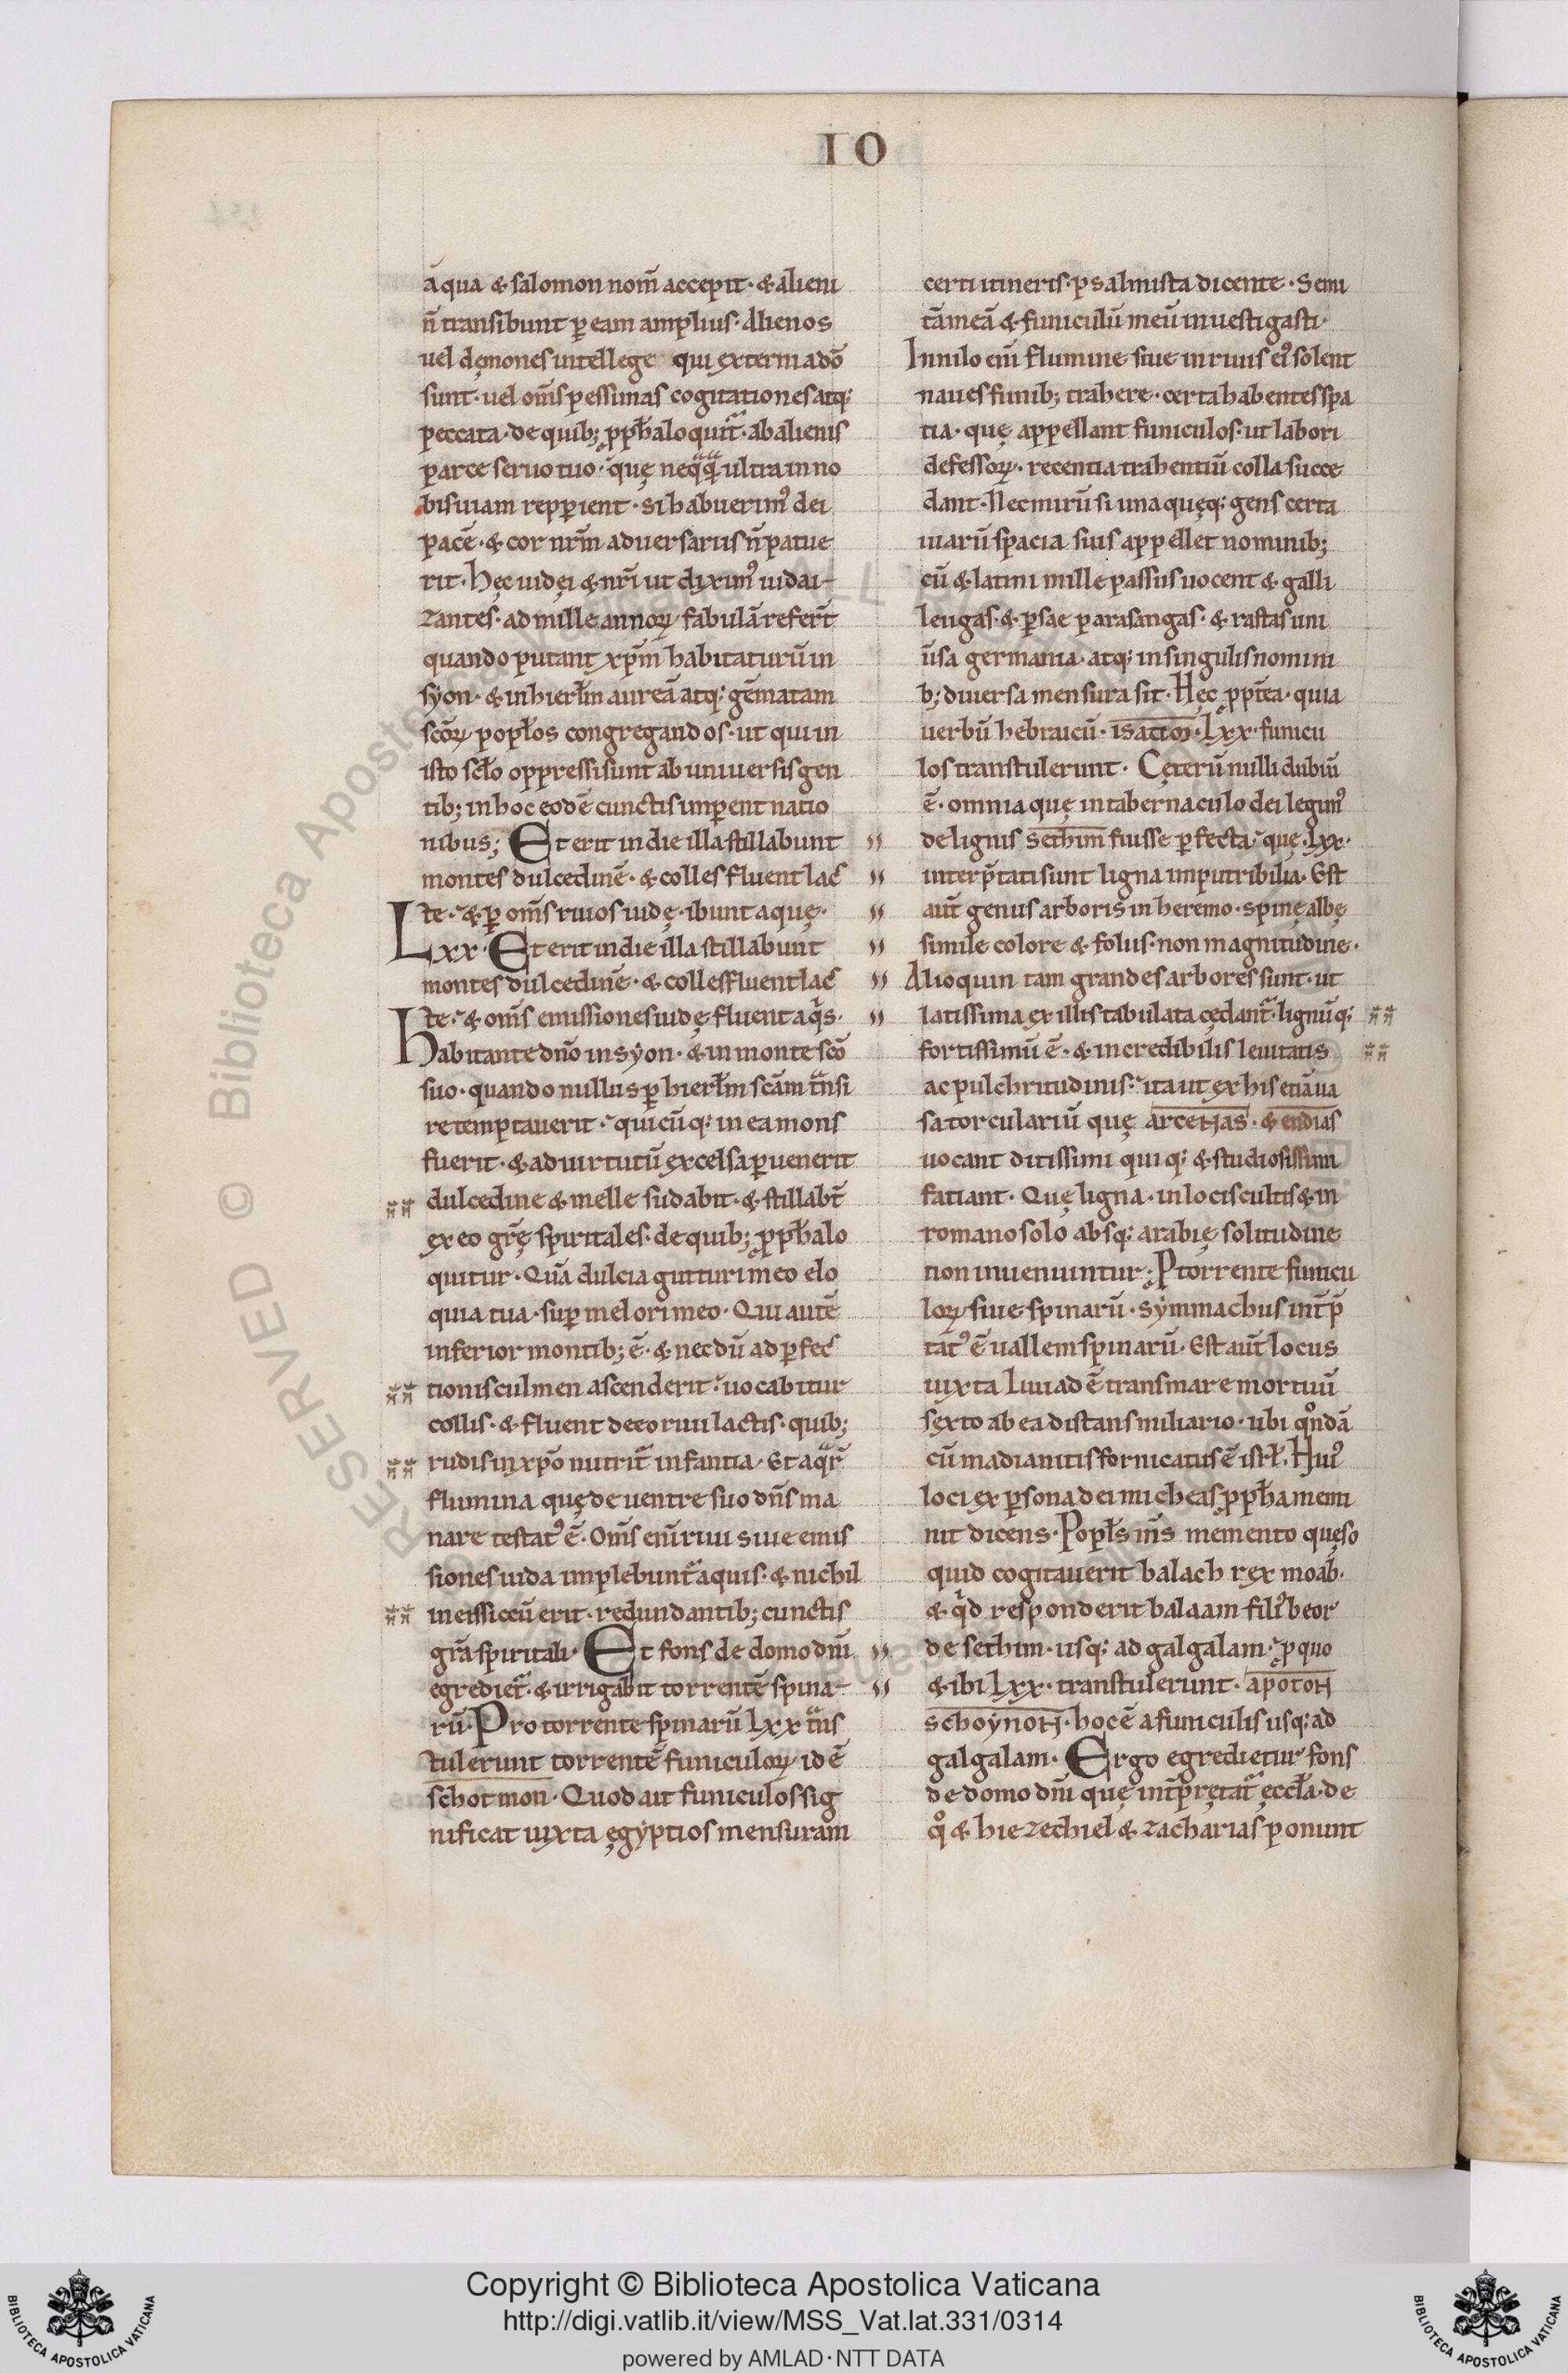 IO
a qua & salomon nom̄ accepit· & alieni
n̄ transibunt ꝑ eam amplius· Alienos
uel dęmones intellege qui externi a dō
sunt· uel om̄s pessimas cogitationes atq;
peccata· de quib; ꝓph̄a loquit̄· ab alienis
parce seruo tuo· quę neq̄q̄ ultra in no
bis uiam repꝑient· si habuerim᾽ dei
pacē· & cor nr̄m aduersariis n̄ patue
rit· hęc iudęi & nr̄i ut diximᷓ iudai-
zantes· ad mille annoꝝ fabulā refert̄
quando putant xp̄m habitaturū in
syon· & in hierłm aureā atq; gēmatam
scōꝝ popłos congregandos· ut qui in
isto scło oppressi sunt ab uniuersis gen
tib; in hoc eodē cunctis imꝑent natio
nibus; Et erit in die illa stillabunt
montes dulcedinē· & colles fluent lac
te· & ꝑ om̄s riuos iudę· ibunt aquę·
Lxx· Et erit in die illa stillabunt
montes dulcedinē· & colles fluent lac
te· & om̄s emissiones iudę fluent aq̄s·
habitante dn̄o in syon· & in monte scō
suo· quando nullus ꝑ hierłm scām t̄nsi
re temptauerit· quicūq; in ea mons
fuerit· & ad uirtutū excelsa ꝑuenerit
dulcedine & melle sudabit· & stillabt̄
ex eo gr̄ę spiritales· de quib; ꝓph̄a lo
quitur· Quā dulcia gutturi meo elo
quia tua· suꝑ mel ori meo· Qui autē
inferior montib; ē· & necdū ad ꝑfec
tionis culmen ascenderit· uocabitur
collis· & fluent de eo riui lactis· quib;
rudis in xp̄o nutrit̄ infantia· Et aq̄r̄
flumina quę de uentre suo dn̄s ma
nare testat᾽ ē· Om̄s enī riui siue emis
siones iuda implebunt̄ aquis· & nichil
in eis siccū erit· redundantib; cunctis
gr̄a spiritali· Et fons de domo dn̄i
egrediet̄· & irrigabit torrentē spina-
rū· Pro torrente spinarū Lxx t̄ns
tulerunt torrentē funiculoꝝ id ē
schotmon· Quod aut funiculos sig
nificat iuxta ęgyptios mensuram
certi itineris· psalmista dicente· Semi
tā meā & funiculū meū inuestigasti·
In nilo enī flumine siue in riuis ei᾽ solent
naues funib; trahere· certa habentes spa
tia· quę appellant funiculos· ut labori
defessoꝝ· recentia trahentiū colla succe
dant· Nec mirū si una quęq; gens certa
uiarū spacia suis appellet nominib;
cū & latini mille passus uocent & galli
leugas· & ꝑsae parasangas· & rastas uni
ūsa germania· atq; in singulis nomini
b; diuersa mensura sit· Hęc ꝓpt̄ea· quia
uerbū hebraicū· isattoi· Lxx· funicu
los transtulerunt· Cęterū nulli dubiū
ē· omnia quę in tabernaculo dei legim᾽
de lignis sethim fuisse ꝑfecta· quę· Lxx·
interp̄tati sunt ligna imputribilia· Est
aut̄ genus arboris in heremo· spinę albę
simile colore & foliis· non magnitudine·
Alioquin tam grandes arbores sunt· ut
latissima ex illis tabulata cędant̄· lignūq;
fortissimū ē· & incredibilis leuitatis
ac pulchritudinis· ita ut ex his etiā ua
sa torculariū quę arceHas· & endias
uocant ditissimi quiq; & studiosissimi
fatiant· Quę ligna· in locis cultis & in
romano solo absq; arabię solitudine
non inueniuntur· Ꝓ torrente funicu
loꝝ siue spinarū· symmachus int̄p̄
tat᾽ ē uallem spinarū· Est aut̄ locus
iuxta Liuiadē trans mare mortuū
sexto ab ea distans miliario· ubi q̊ndā
cū madianitis fornicatus ē isrł· Hui᾽
loci ex ꝑsona dei micheas ꝓph̄a memi
nit dicens· Popłs m̄s memento quęso
quid cogitauerit balach rex moab·
& q̄d responderit balaam fili᾽ beor
de sethim· usq; ad galgalam· ꝓ quo
& ibi Lxx· transtulerunt· apotoH
schoynoH· hoc ē a funiculis usq; ad
galgalam· Ergo egredietur fons
de domo dn̄i quę int̄prętat̄ ęccła· de
q̊ & hiezechiel & zacharias ponunt
Copyright © Biblioteca Apostolica Vaticana
http://digi.vatlib.it/view/MSS_Vat.lat.331/0314
powered by AMLAD·NTT DATA
BIBLIOTECA APOSTOLICA VATICANA
BIBLIOTECA APOSTOLICA VATICANA